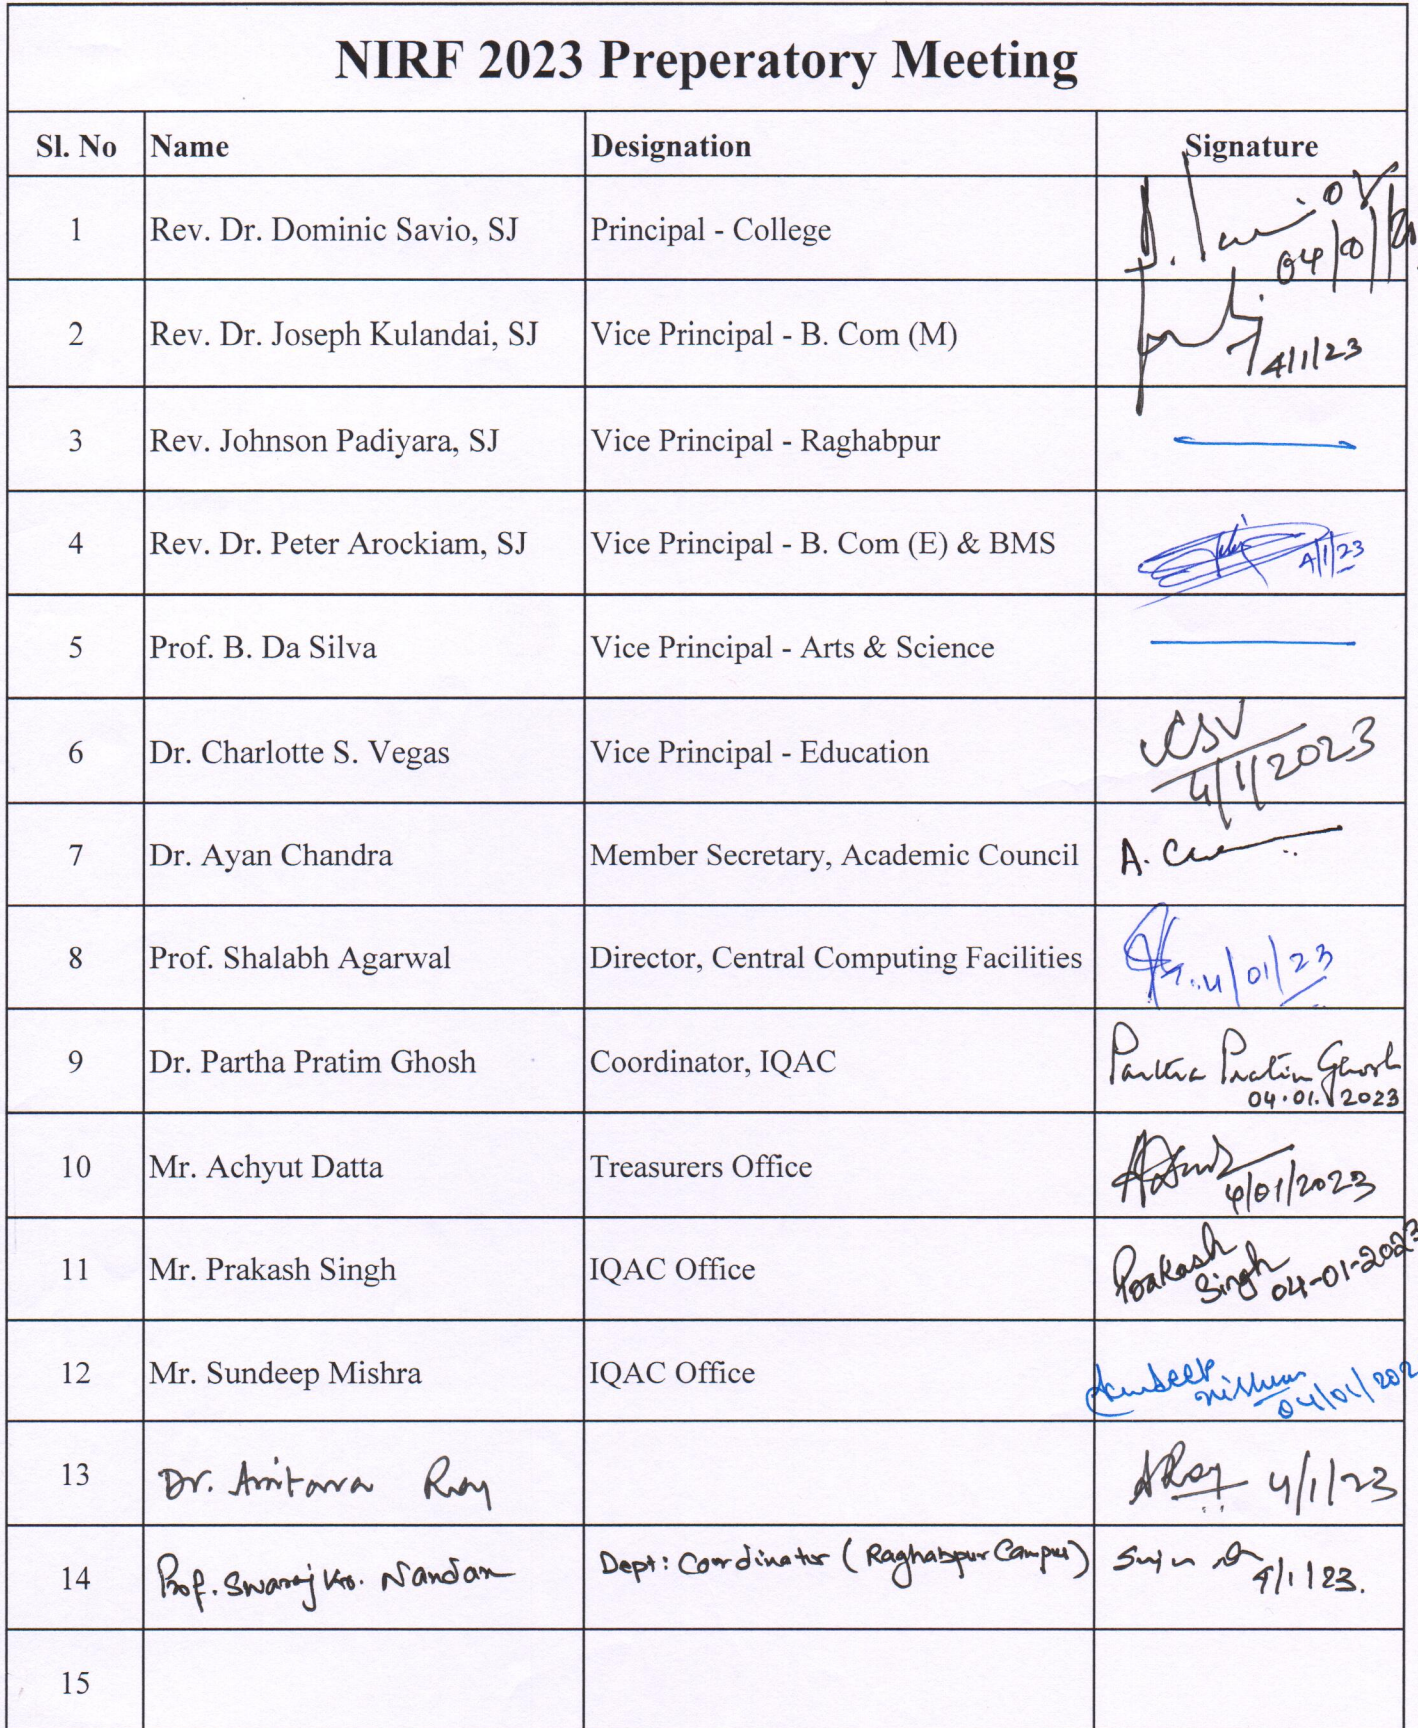 NIRF 2023 Preperatory Meeting
Sl. No Name Designation Signature
1 Rev. Dr. Dominic Savio, SJ Principal - College
2 Rev. Dr. Joseph Kulandai, SJ Vice Principal - B. Com (M) 4/1/23
3 Rev. Johnson Padiyara, SJ Vice Principal - Raghabpur
4 Rev. Dr. Peter Arockiam, SJ Vice Principal - B. Com (E) & BMS 4/1/23
5 Prof. B. Da Silva Vice Principal - Arts & Science
6 Dr. Charlotte S. Vegas Vice Principal - Education CSV
4/1/2023
7 Dr. Ayan Chandra Member Secretary, Academic Council A.
8 Prof. Shalabh Agarwal Director, Central Computing Facilities 4/01/23
9 Dr. Partha Pratim Ghosh Coordinator, IQAC Partha Pratim Ghosh
04.01.2023
10 Mr. Achyut Datta Treasurers Office 4/01/2023
11 Mr. Prakash Singh IQAC Office Prakash
Singh 04-01-2023
12 Mr. Sundeep Mishra IQAC Office Sundeep
Mishra
04/01/202
13 Dr. Amitava Roy ARoy 4/1/23
14 Prof. Swaraj Kr. Nandan Dept: Coordinator (Raghabpur Campus) 4/1/23.
15